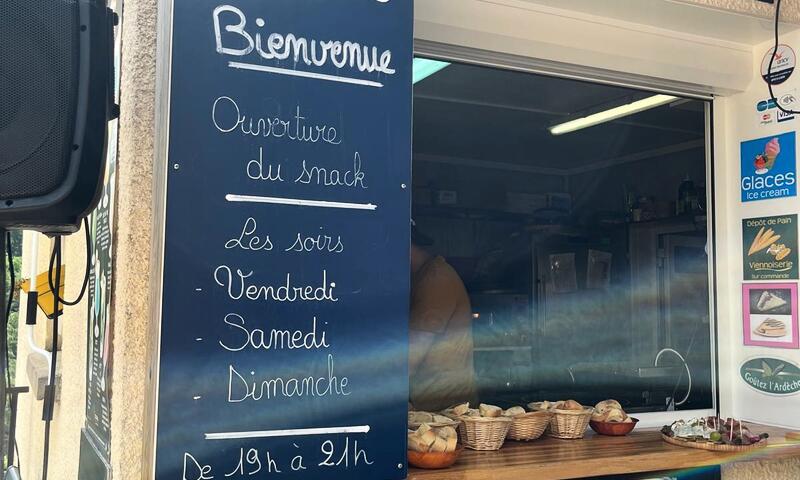 Bienvenue
Ouverture
du snack
Les soirs
- Vendredi
- Samedi
- Dimanche
De 19h à 21h
VISA
Glaces
Ice cream
Dépôt de Pain
Viennoiserie
Sur commande
Goûtez l'Ardèche